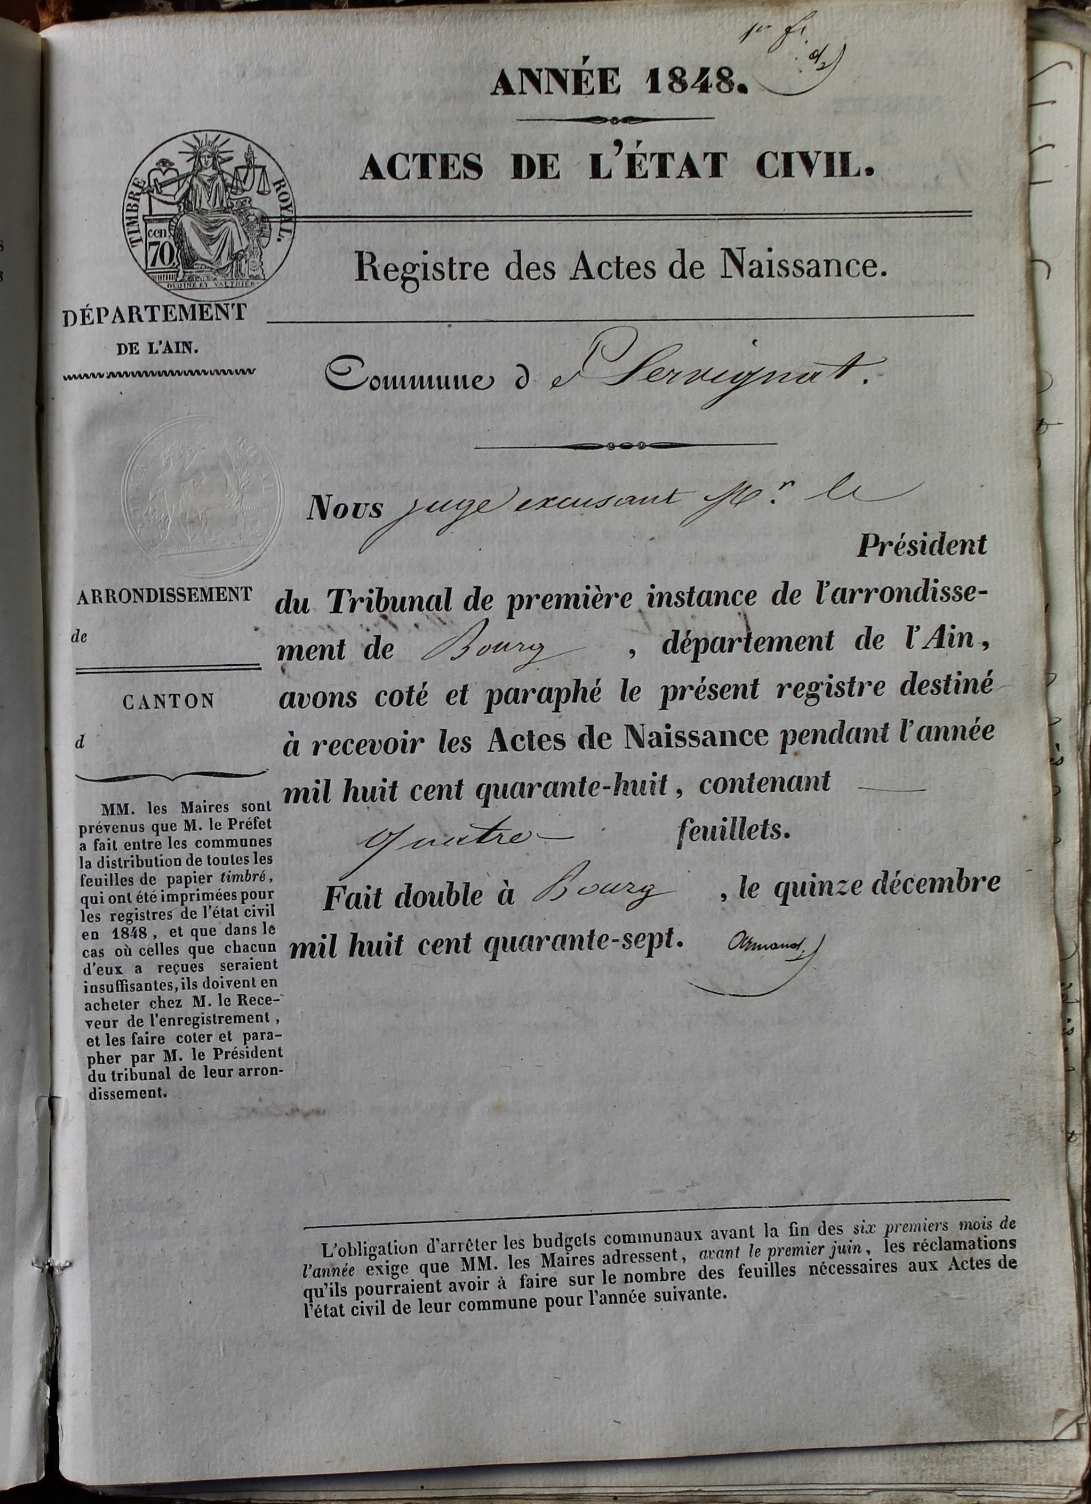 1er ft.
ANNÉE 1848.
ACTES DE L'ÉTAT CIVIL.
TIMBRE ROYAL.
cen
70
Registre des Actes de Naissance.
DÉPARTEMENT
DE L'AIN.
Commune de Servignat.
Nous juge excusant Mr. le
Président
du Tribunal de première instance de l'arrondisse-
ment de Bourg, département de l'Ain,
avons coté et paraphé le présent registre destiné
à recevoir les Actes de Naissance pendant l'année
mil huit cent quarante-huit, contenant
Quatre feuillets.
Fait double à Bourg, le quinze décembre
mil huit cent quarante-sept.
ARRONDISSEMENT
de
CANTON
d
MM. les Maires sont
prévenus que M. le Préfet
a fait entre les communes
la distribution de toutes les
feuilles de papier timbré,
qui ont été imprimées pour
les registres de l'état civil
en 1848, et que dans le
cas où celles que chacun
d'eux a reçues seraient
insuffisantes, ils doivent en
acheter chez M. le Rece-
veur de l'enregistrement,
et les faire coter et para-
pher par M. le Président
du tribunal de leur arron-
dissement.
L'obligation d'arrêter les budgets communaux avant la fin des six premiers mois de
l'année exige que MM. les Maires adressent, avant le premier juin, les réclamations
qu'ils pourraient avoir à faire sur le nombre des feuilles nécessaires aux Actes de
l'état civil de leur commune pour l'année suivante.